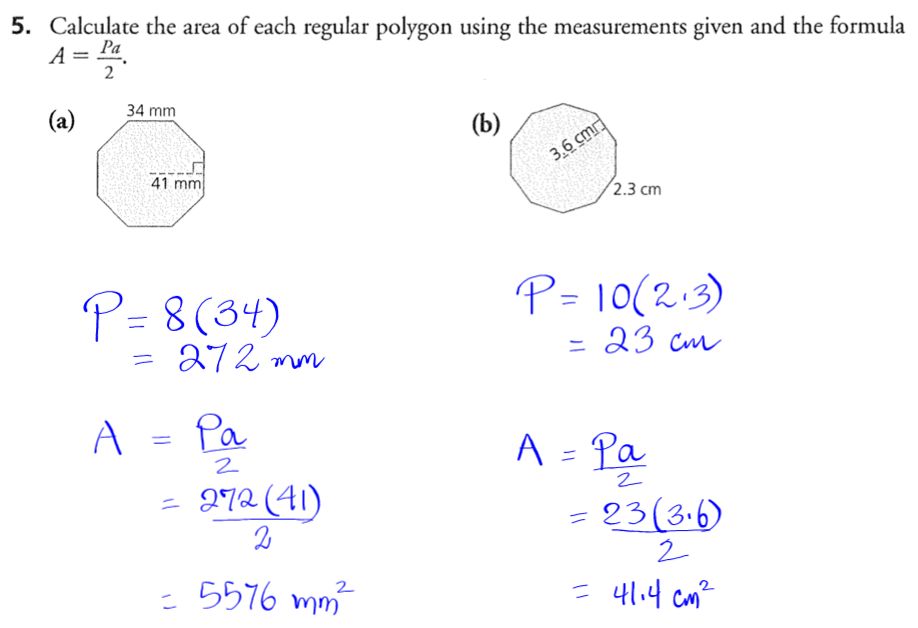 5. Calculate the area of each regular polygon using the measurements given and the formula
A = Pa/2.
(a)
34 mm
41 mm
(b)
3.6 cm
2.3 cm
P = 8(34)
= 272 mm
A = Pa/2
= 272(41)/2
= 5576 mm²
P = 10(2.3)
= 23 cm
A = Pa/2
= 23(3.6)/2
= 41.4 cm²